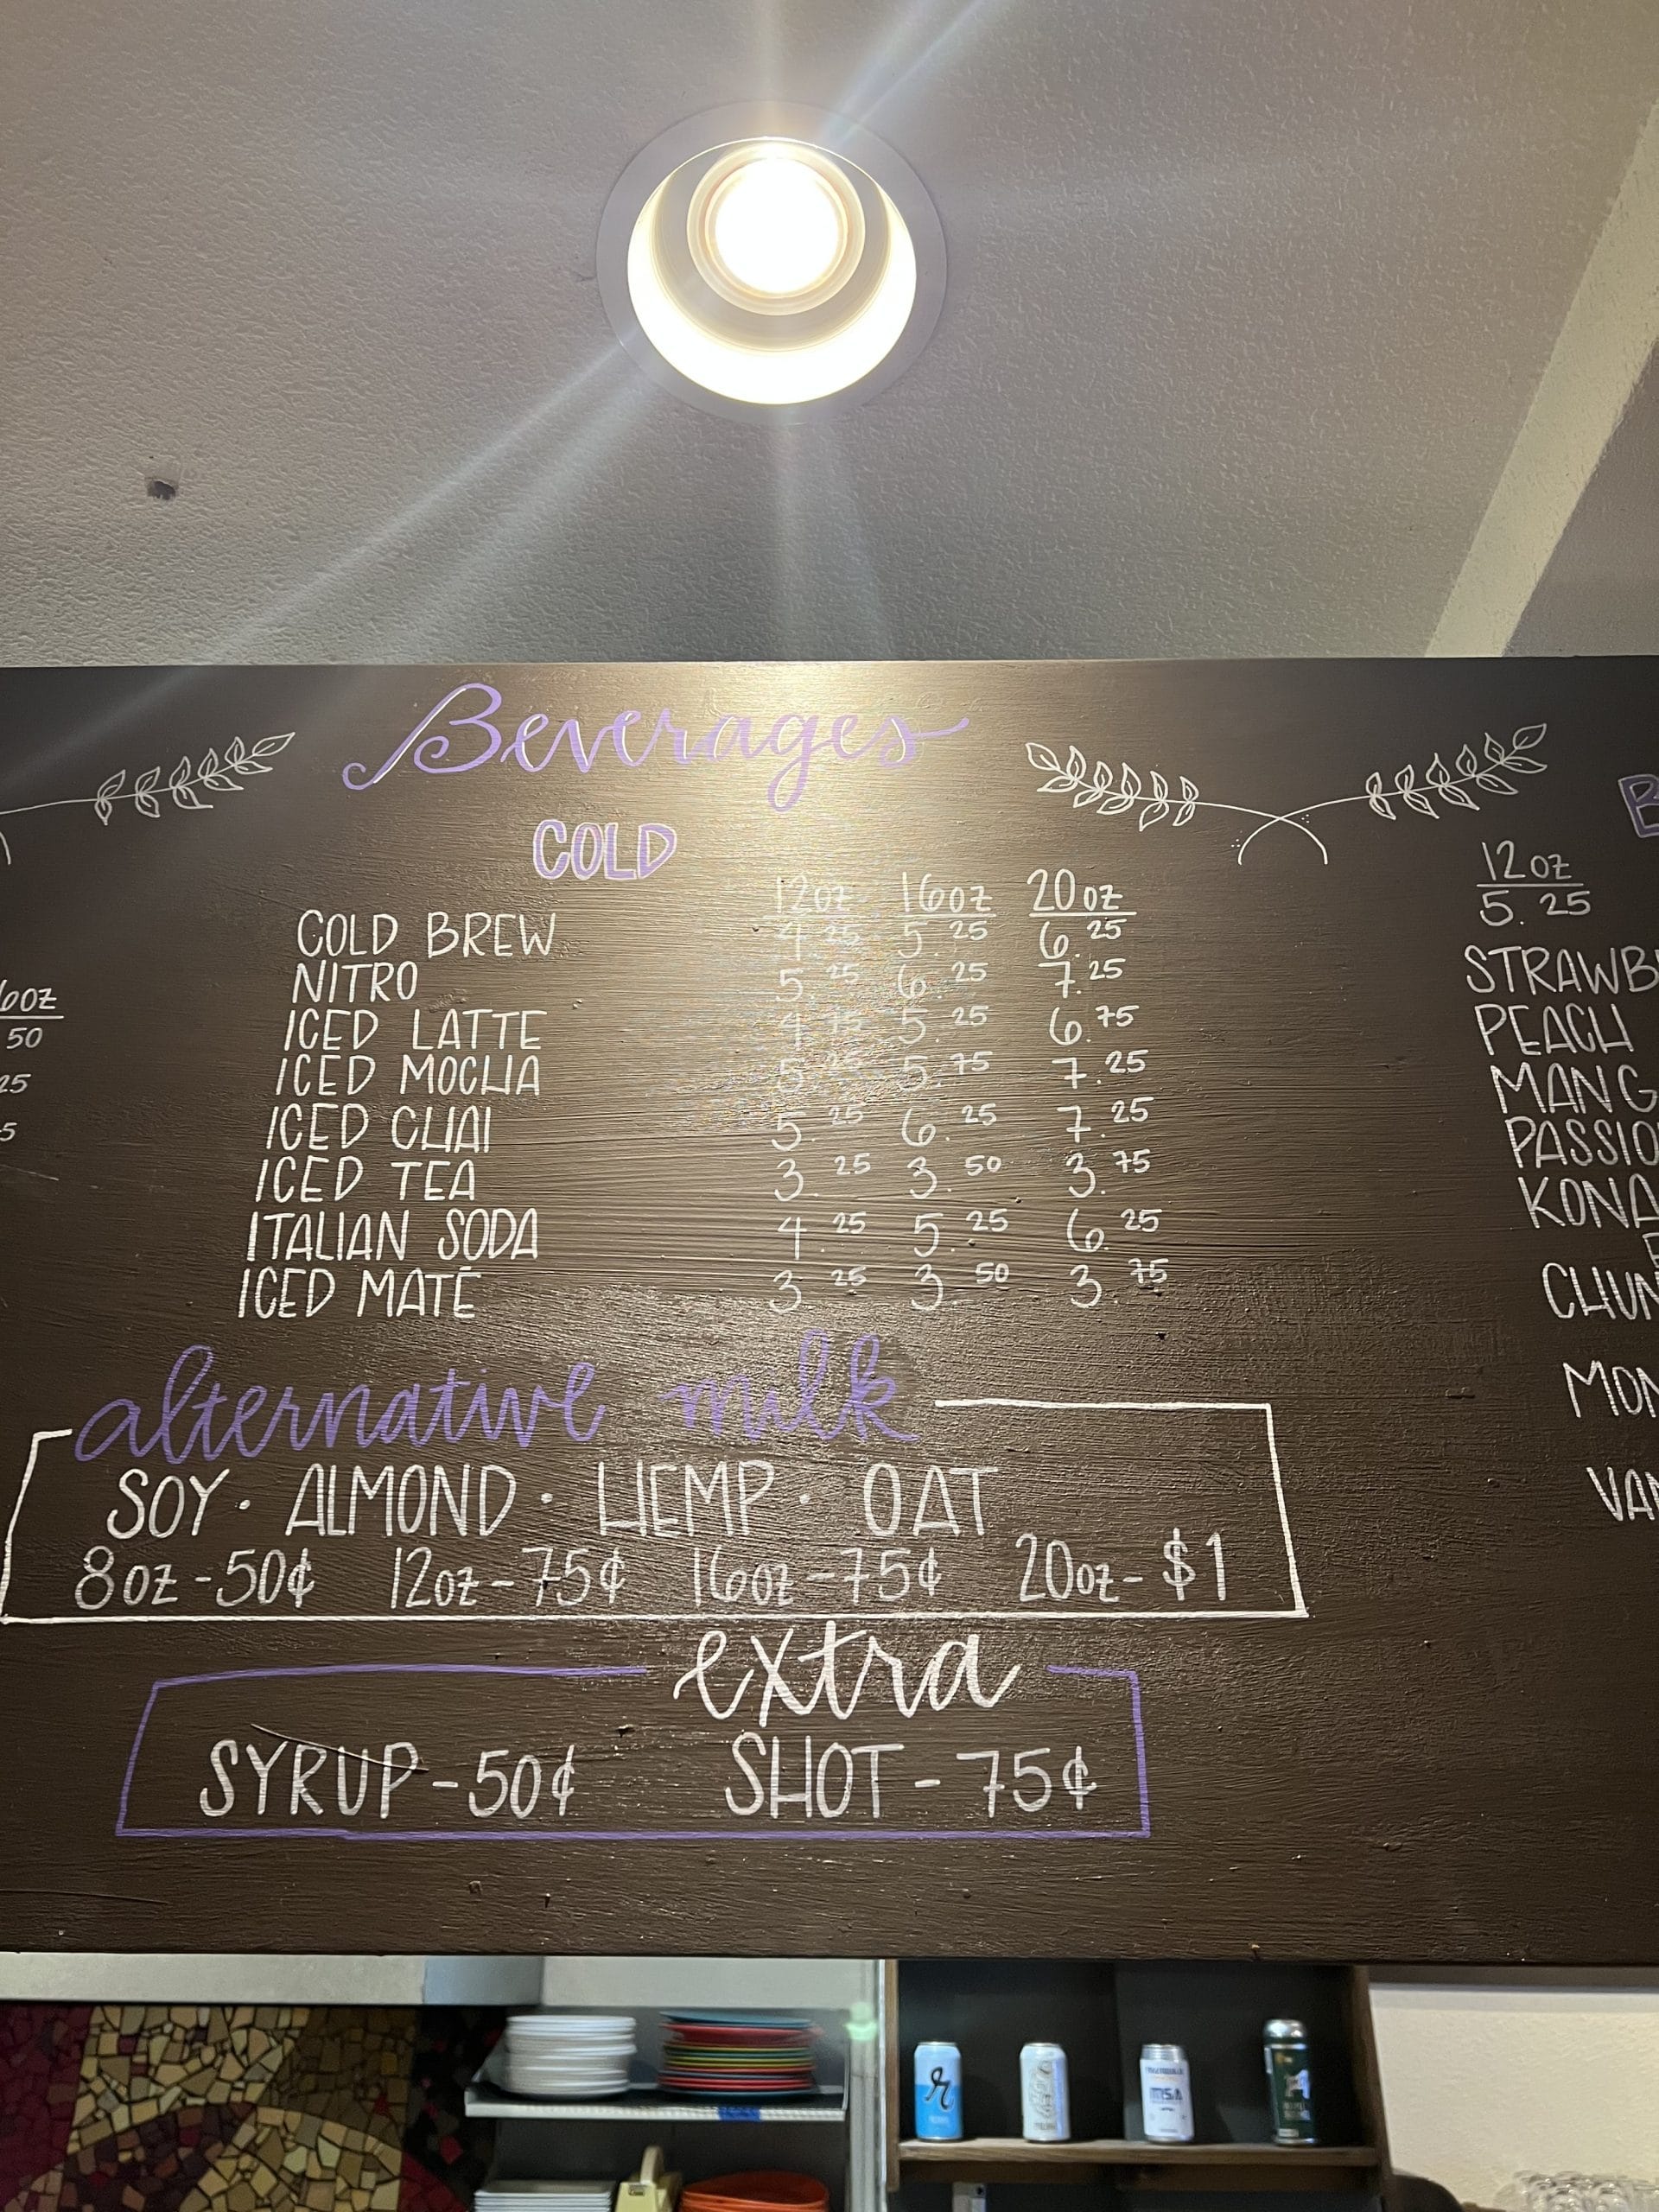 Beverages
COLD
12oz 16oz 20oz
COLD BREW 4.25 5.25 6.25
NITRO 5.25 6.25 7.25
ICED LATTE 4.75 5.25 6.75
ICED MOCHA 5.25 5.75 7.25
ICED CHAI 5.25 6.25 7.25
ICED TEA 3.25 3.50 3.75
ITALIAN SODA 4.25 5.25 6.25
ICED MATÉ 3.25 3.50 3.75
alternative milk
SOY · ALMOND · HEMP · OAT
8oz - 50¢ 12oz - 75¢ 16oz - 75¢ 20oz - $1
extra
SYRUP - 50¢ SHOT - 75¢
50
25
12oz
5.25
PEACH